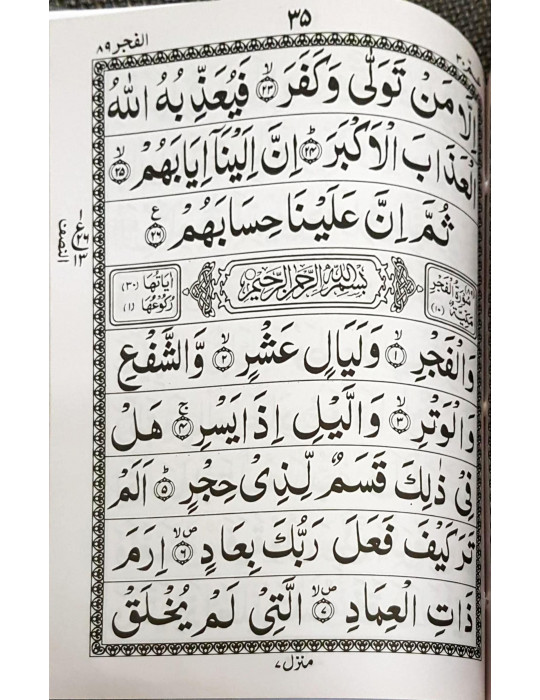 ۳۵
الفجر ۸۹
اِلَّا مَنْ تَوَلّٰى وَكَفَرَ ۙ﴿۲۳﴾ فَيُعَذِّبُهُ اللّٰهُ
الْعَذَابَ الْاَكْبَرَ ؕ﴿۲۴﴾ اِنَّ اِلَيْنَاۤ اِيَابَهُمْ ۙ﴿۲۵﴾
ثُمَّ اِنَّ عَلَيْنَا حِسَابَهُمْ ﴿۲۶﴾ ع
۱
ع
۲۶
۱۳
النصف
سُوْرَةُ الْفَجْرِ مَكِّيَّةٌ (۱۰) بِسْمِ اللّٰهِ الرَّحْمٰنِ الرَّحِيْمِ اٰيَاتُهَا (۳۰) رُكُوْعُهَا (۱)
وَالْفَجْرِ ۙ﴿۱﴾ وَلَيَالٍ عَشْرٍ ۙ﴿۲﴾ وَّالشَّفْعِ
وَالْوَتْرِ ۙ﴿۳﴾ وَالَّيْلِ اِذَا يَسْرِ ۚ﴿۴﴾ هَلْ
فِيْ ذٰلِكَ قَسَمٌ لِّذِيْ حِجْرٍ ؕ﴿۵﴾ اَلَمْ
تَرَ كَيْفَ فَعَلَ رَبُّكَ بِعَادٍ ۪ۙ﴿۶﴾ اِرَمَ
ذَاتِ الْعِمَادِ ۪ۙ﴿۷﴾ الَّتِيْ لَمْ يُخْلَقْ
منزل ۷